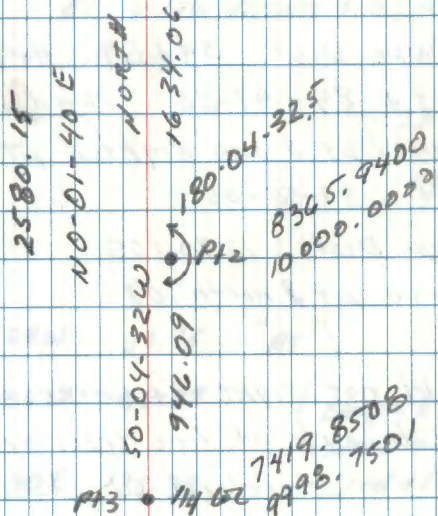 2580.15
N0-01-40 E
NORTH
1634.06
180.04-32.5
Pt2
8365.9400
10000.0000
S0-04-32W
946.09
Pt3
7419.8508
9998.7501